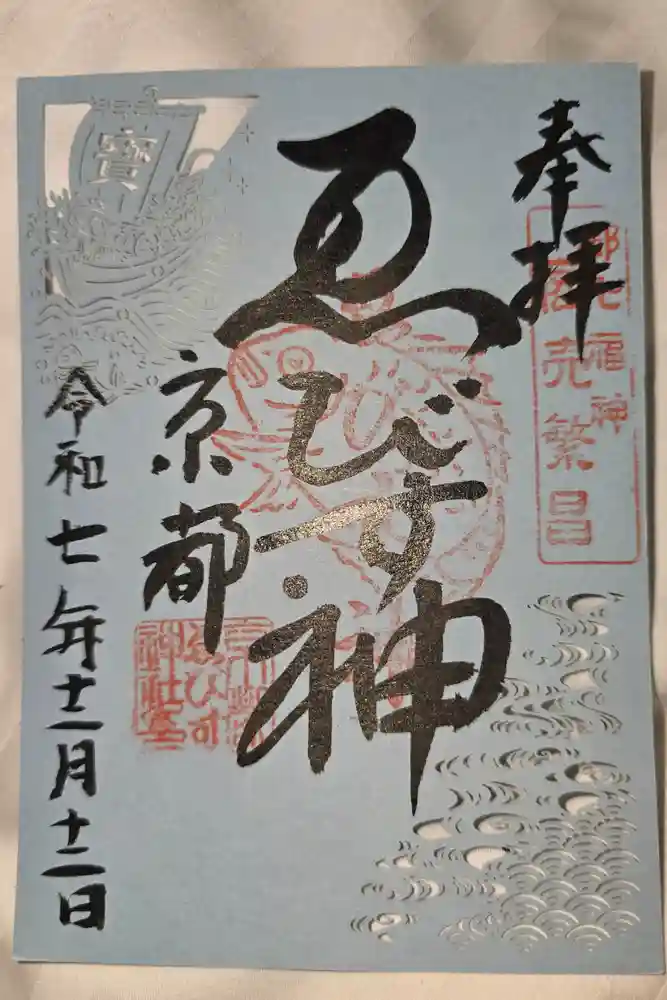 奉拝
都七福神
商売繁昌
ゑびす神
京都
ゑびす
神社
令和七年十一月十二日
寶